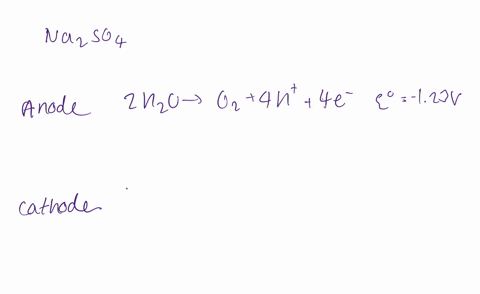 Na₂SO₄
Anode 2H₂O → O₂ + 4H⁺ + 4e⁻ ε° = -1.23V
Cathode